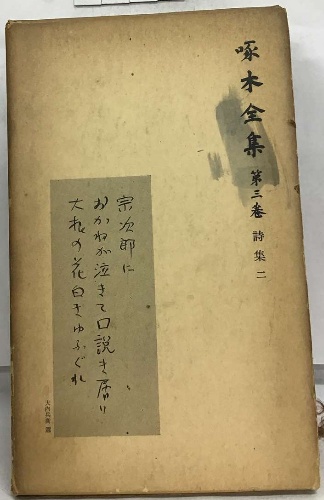 啄木全集 第三巻 詩集 二
宗次郎に
おかねが泣きて口説き居り
大根の花白きゆふぐれ